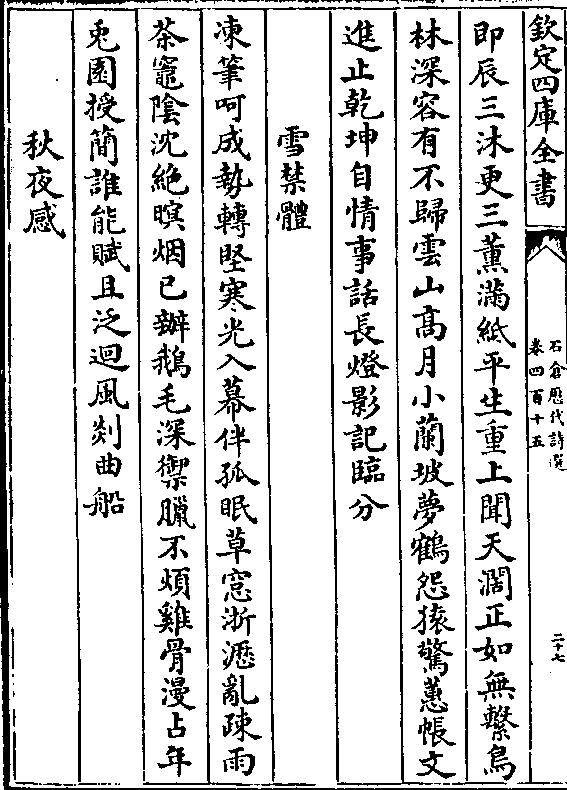 欽定四庫全書
石倉歷代詩選
卷四百十五
二十七
即辰三沐更三薰滿紙平生重上聞天濶正如無繫鳥
林深容有不歸雲山髙月小蘭坡夢鶴怨猿驚蕙帳文
進止乾坤自情事話長燈影記臨分
雪禁體
凍筆呵成勢轉堅寒光入幕伴孤眠草窓淅瀝亂疎雨
茶竈陰沈絶暝烟已辦鵝毛深禦臘不煩雞骨漫占年
兎園授簡誰能賦且泛迴風剡曲船
秋夜感